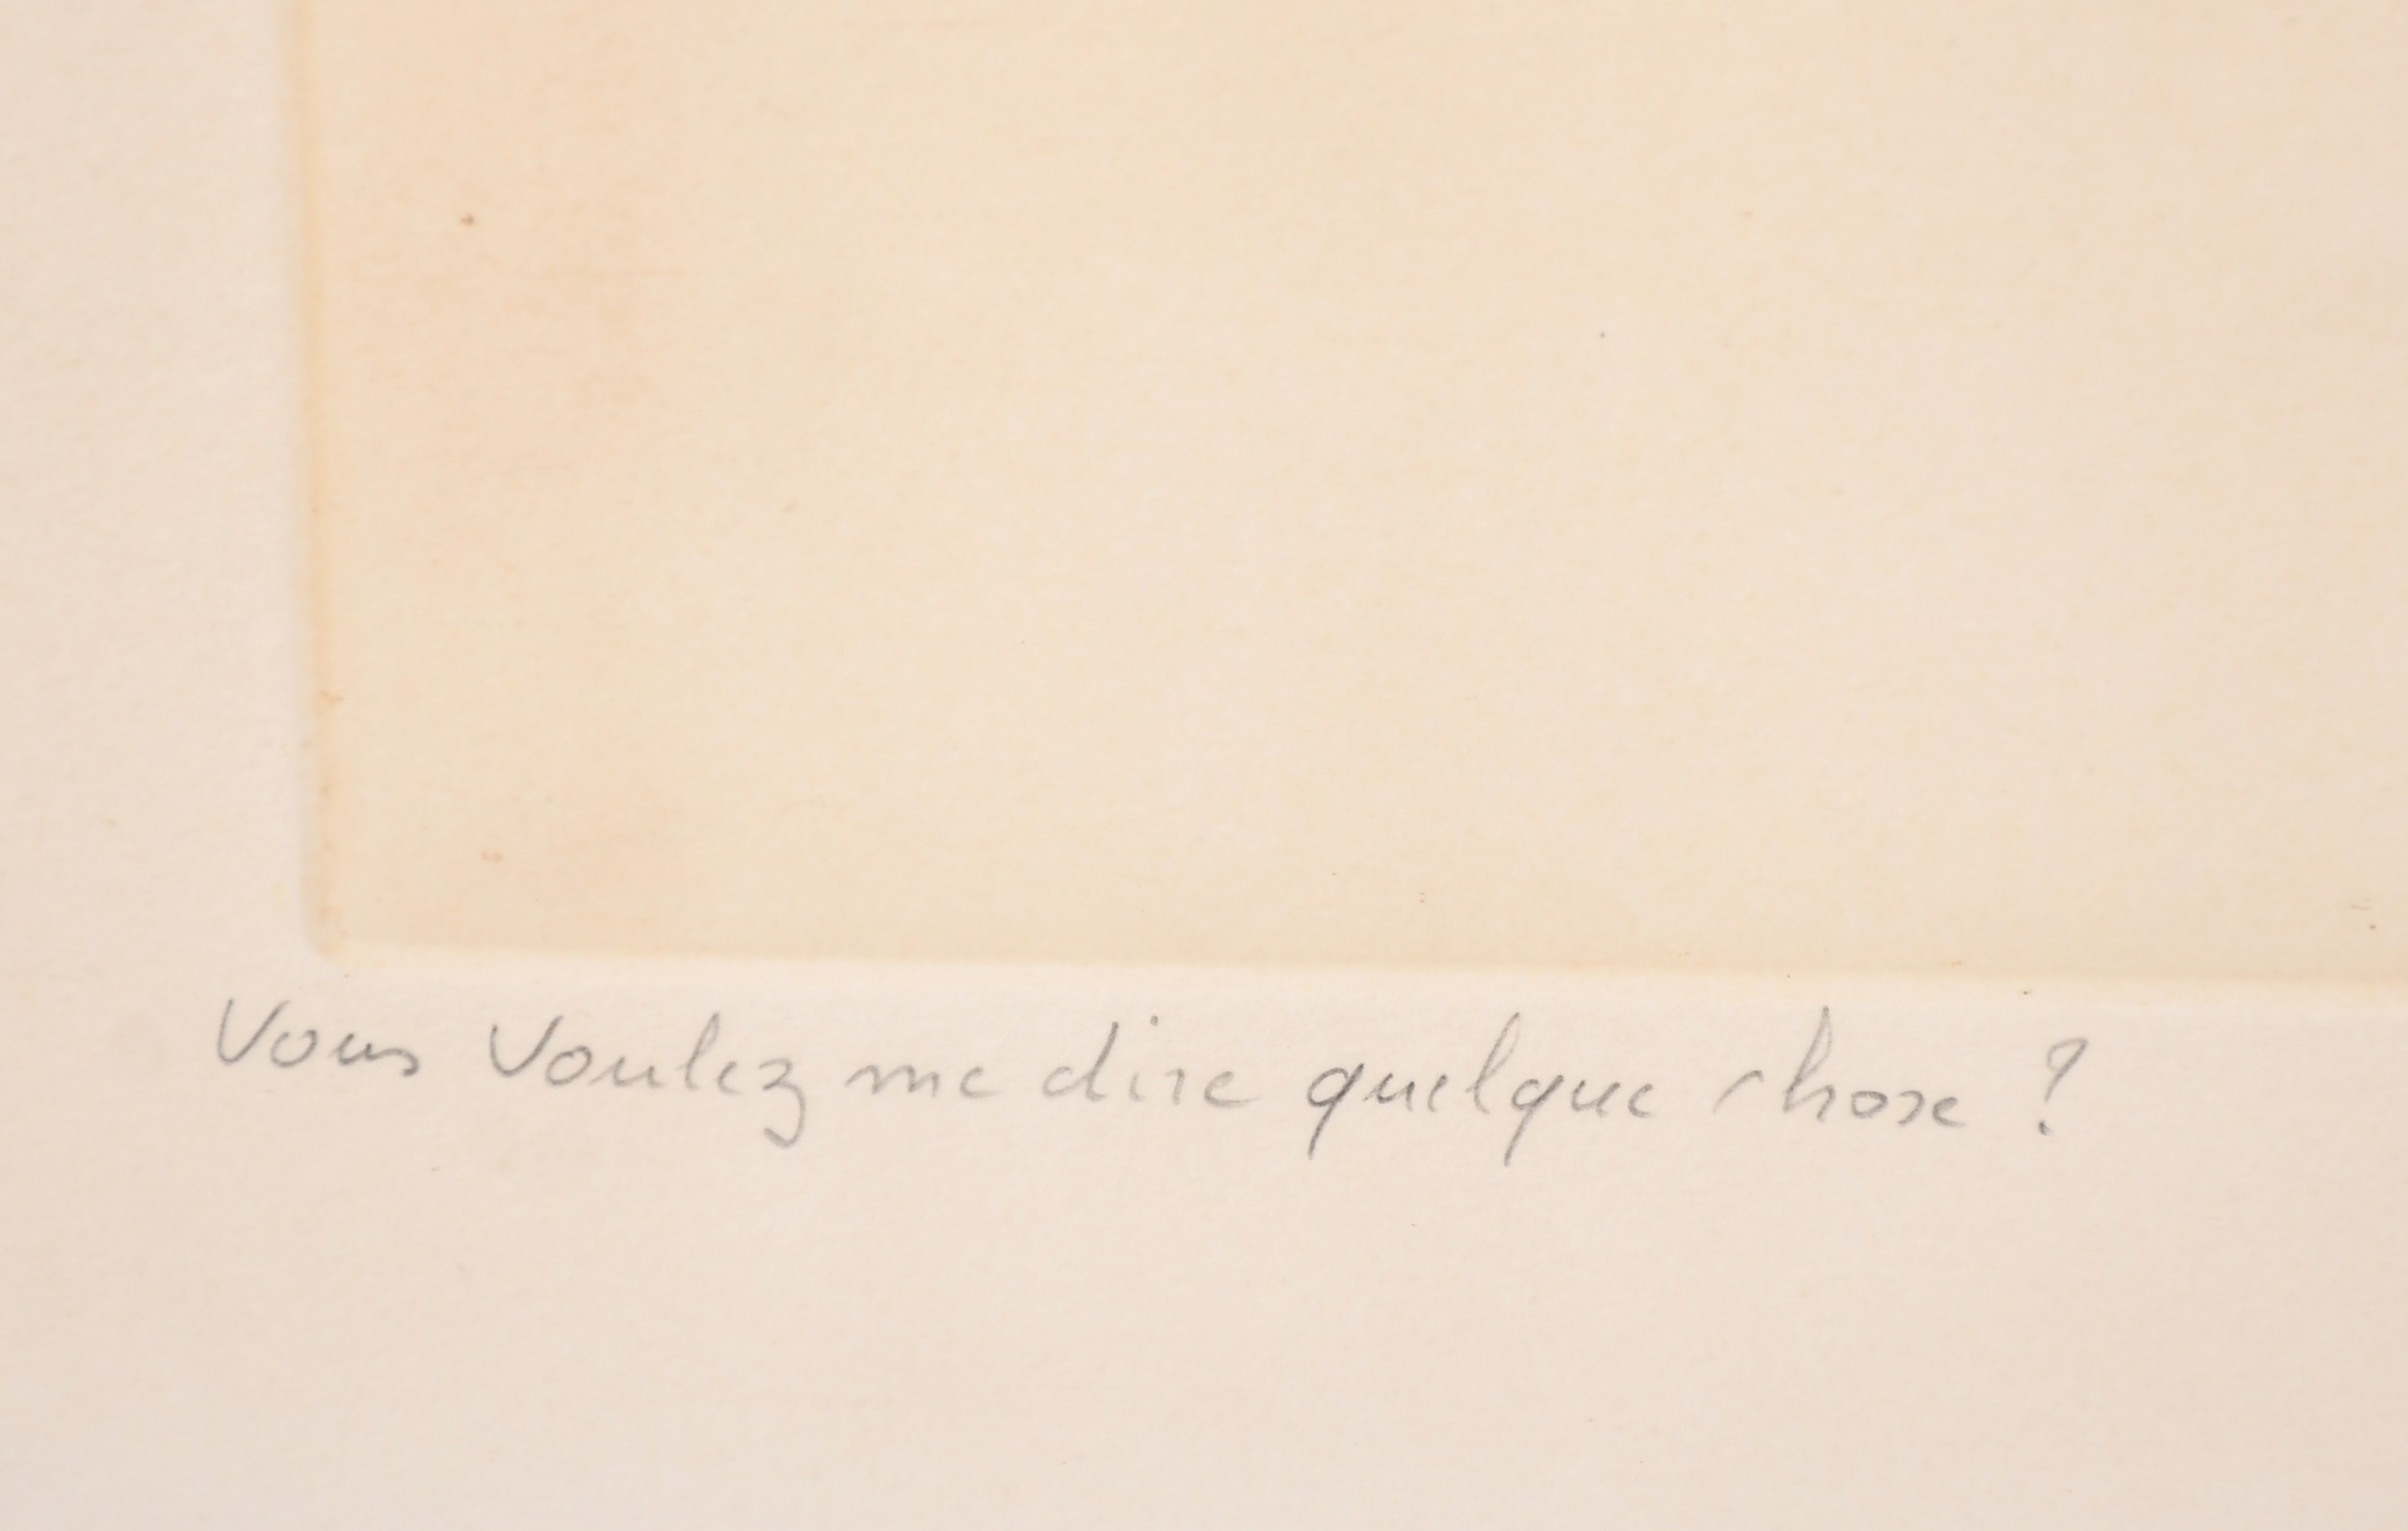 Vous Voulez me dire quelque chose ?